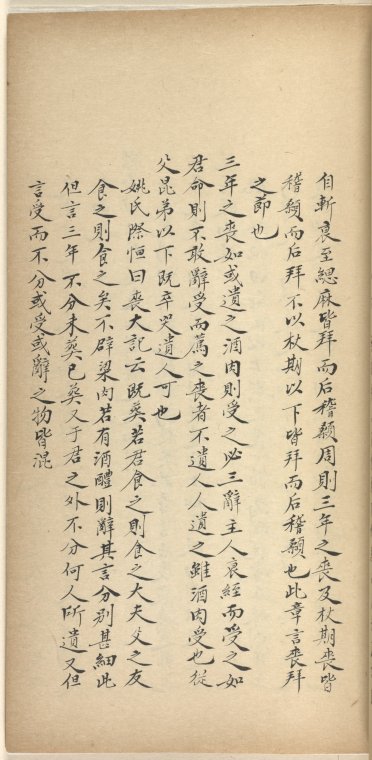 自斬衰至緦麻皆拜而后稽顙周則三年之喪及杖期喪皆
稽顙而后拜不以杖期以下皆拜而后稽顙也此章言喪拜
之節也
三年之喪如或遺之酒肉則受之必三辭主人衰絰而受之如
君命則不敢辭受而薦之喪者不遺人人遺之雖酒肉受也從
父昆弟以下既卒哭遺人可也
姚氏際恒曰喪大記云既葬若君食之則食之大夫父之友
食之則食之矣不辟粱肉若有酒醴則辭其言分別甚細此
但言三年不分未葬已葬又于君之外不分何人所遺又但
言受而不分或受或辭之物皆混